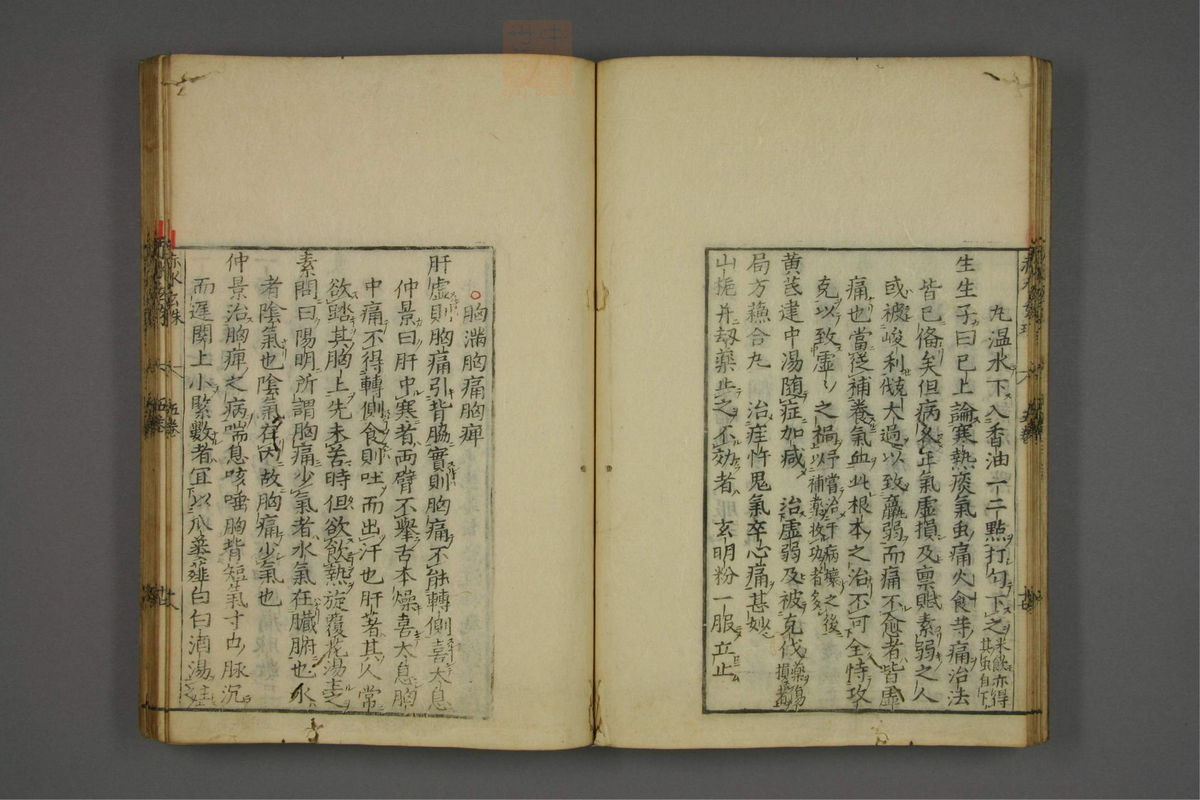 丸温水下入香油一二點打匀下之米飲亦得其虫自下
生生子曰已上論寒熱痰氣虫痛火食等痛治法
皆已俻矣但病久正氣虚損及禀賦素弱之人
或被峻利伐大過以致羸弱而痛不愈者皆虚
痛也當從補養氣血此根本之治不可全恃攻
克以致虚〻之禍
黄芪建中湯随症加減 治虚弱及被克伐藥傷損者
局方蘓合丸 治疰忤鬼氣卒心痛甚妙
山梔并刼藥止之不効者 玄明粉一服立止
胸滿胸痛胸痺
肝虚則胸痛引背脇實則胸痛不能轉側喜太息
仲景曰肝中寒者両臂不舉舌本燥喜太息胸
中痛不得轉側食則吐而出汗也肝著其人常
欲踏其胸上先未苦時但欲飲熱旋覆花湯主之
素問曰陽明所謂胸痛少氣者水氣在臓腑也水
者陰氣也陰氣在内故胸痛少氣也
仲景治胸痺之病喘息咳唾胸背短氣寸口脉沉
而遲関上小緊數者宜以瓜蔞薤白白酒湯主
赤水玄珠
五卷